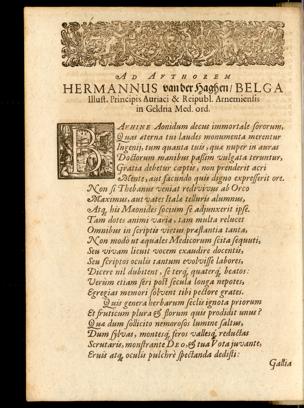 AD AVTHOREM
HERMANNUS van der Haghen/ BELGA
Illust. Principis Auriaci & Reipubl. Arnemiensis
in Geldria Med. ord.
BAEHINE Aonidum decus immortale sororum,
Quae aterna tua laudes monumenta merentur
Ingenij, tum quanta tuis, qua nuper in auras
Doctorum manibus passim vulgata feruntur,
Gratia debetur captis, non prenderit acri
Mente, aut facundo quis digno expresserit ore.
Non si Thebanus veniat redivivus ab Orco
Maximus, aut vates Itala telluris alumnus,
Atq, his Maonides socium se adjunxerit ipse.
Tam dotes animi varia, tam multa relucet
Omnibus in scriptis virtus praestanta tanta,
Non modo ut aquales Medicorum scita sequuti,
Seu vivam licuit vocem exaudire docentis,
Seu scriptos oculis tantum evolvisse labores,
Dicere nil dubitent, se terq, quaterq, beatos:
Verum etiam seri post secula longa nepotes,
Egregias memori solvent tibi pectore grates.
Quis genera herbarum seclis ignota priorum
Et fruticum plura & florum quis prodidit unus?
Qua dum sollicito nemorosos lumine saltus,
Dum sylvas, montesq, feros vallesq, reductas
Scrutaris, monstrante DEO, & tua Vota juvante,
Eruis atq, oculis pulchrè spectanda dedisti:
Gallia